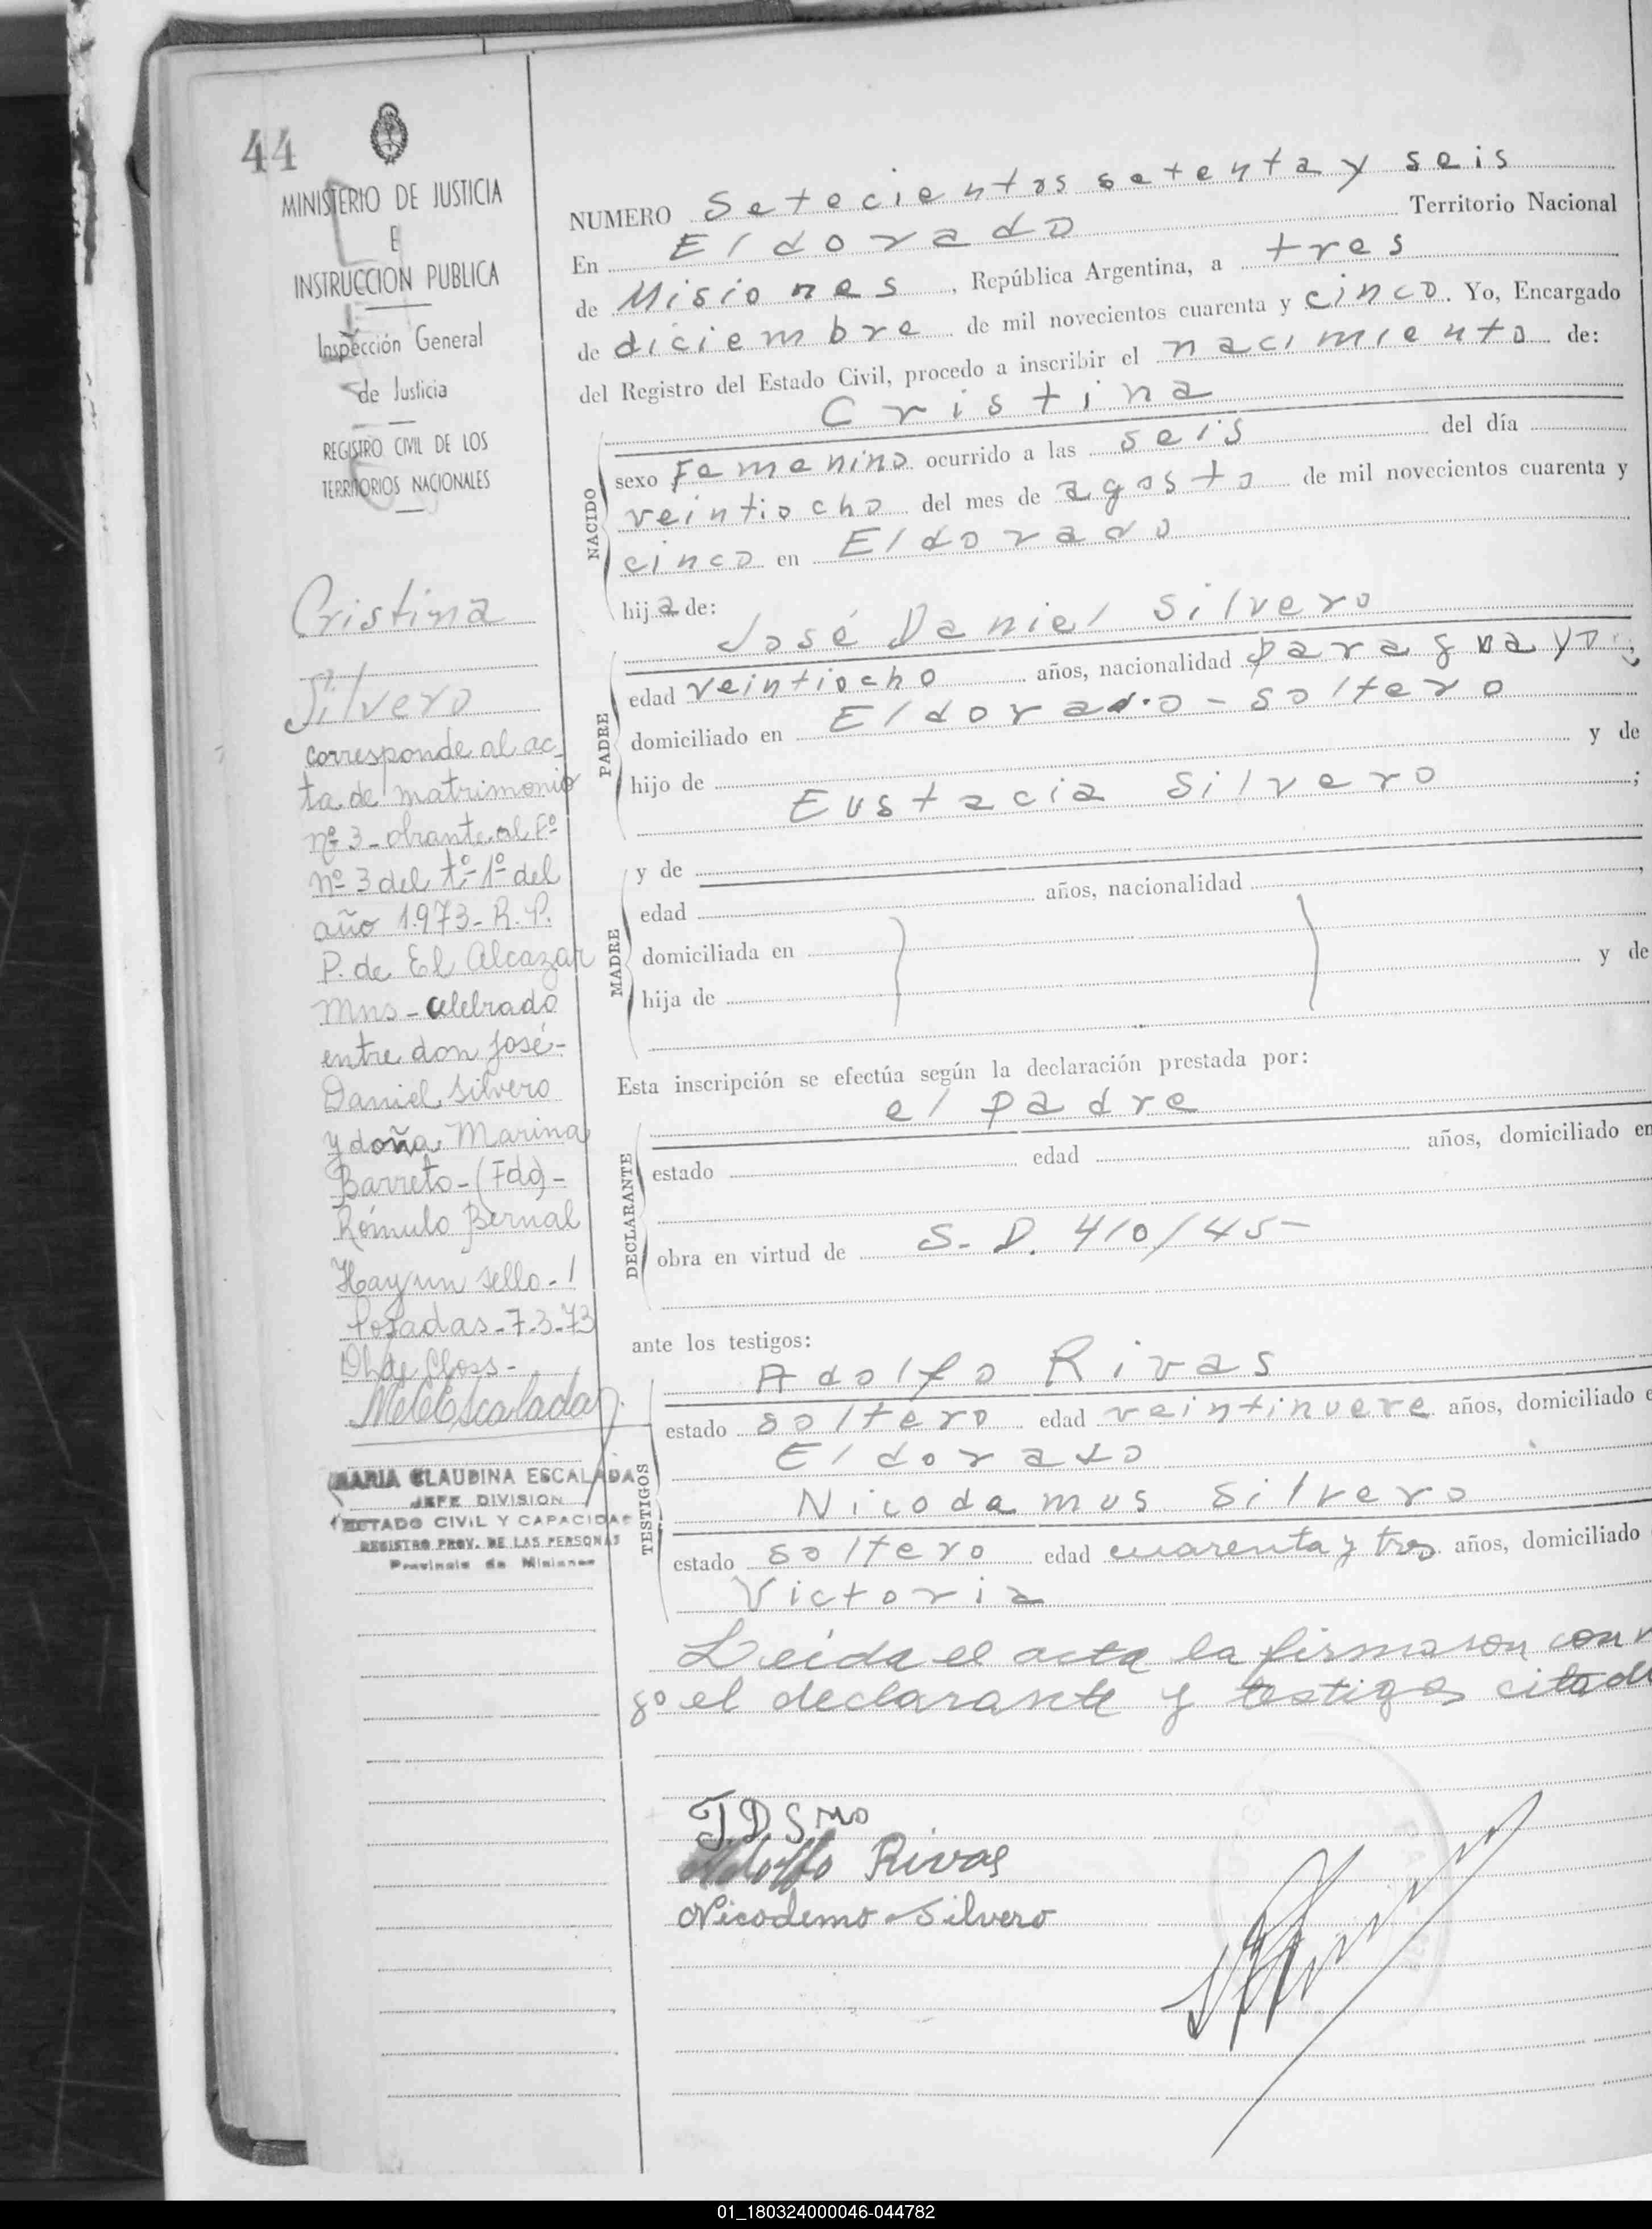 44
MINISTERIO DE JUSTICIA
E
INSTRUCCION PUBLICA
Inspección General
de Justicia
REGISTRO CIVIL DE LOS
TERRITORIOS NACIONALES
Cristina
Silvero
corresponde al ac-
ta de matrimonio
nº 3 - obrante al Fº
nº 3 del tº 1º del
año 1973 - R. P.
P. de El Alcazar
Mns - celebrado
entre don José -
Daniel Silvero
y doña Marina
Barreto - (Fdo) -
Rómulo Bernal
Hay un sello - !
Posadas - 7-3-73
MARIA CLAUDINA ESCALADA
JEFE DIVISION
ESTADO CIVIL Y CAPACIDAD
REGISTRO PROV. DE LAS PERSONAS
Provincia de Misiones
NUMERO Setecientos setenta y seis
En Eldorado Territorio Nacional
de Misiones, República Argentina, a tres
de diciembre de mil novecientos cuarenta y cinco. Yo, Encargado
del Registro del Estado Civil, procedo a inscribir el nacimiento de:
NACIDO
Cristina
sexo Femenino ocurrido a las seis del día
veintiocho del mes de agosto de mil novecientos cuarenta y
cinco en Eldorado
hija de:
PADRE
José Daniel Silvero
edad veintiocho años, nacionalidad paraguayo;
domiciliado en Eldorado - soltero
hijo de y de
Eustacia Silvero ;
MADRE
y de
edad años, nacionalidad ,
domiciliada en
hija de y de
Esta inscripción se efectúa según la declaración prestada por:
DECLARANTE
el padre
estado edad años, domiciliado en
obra en virtud de S. D. 410/45-
ante los testigos:
TESTIGOS
Adolfo Rivas
estado soltero edad veintinueve años, domiciliado e
Eldorado
Nicodemus Silvero
estado soltero edad cuarenta y tres años, domiciliado
Victoria
Leida el acta la firmaron conm
go el declarante y testigos citad
J. D. S
Adolfo Rivas
Nicodemo Silvero
01_180324000046-044782